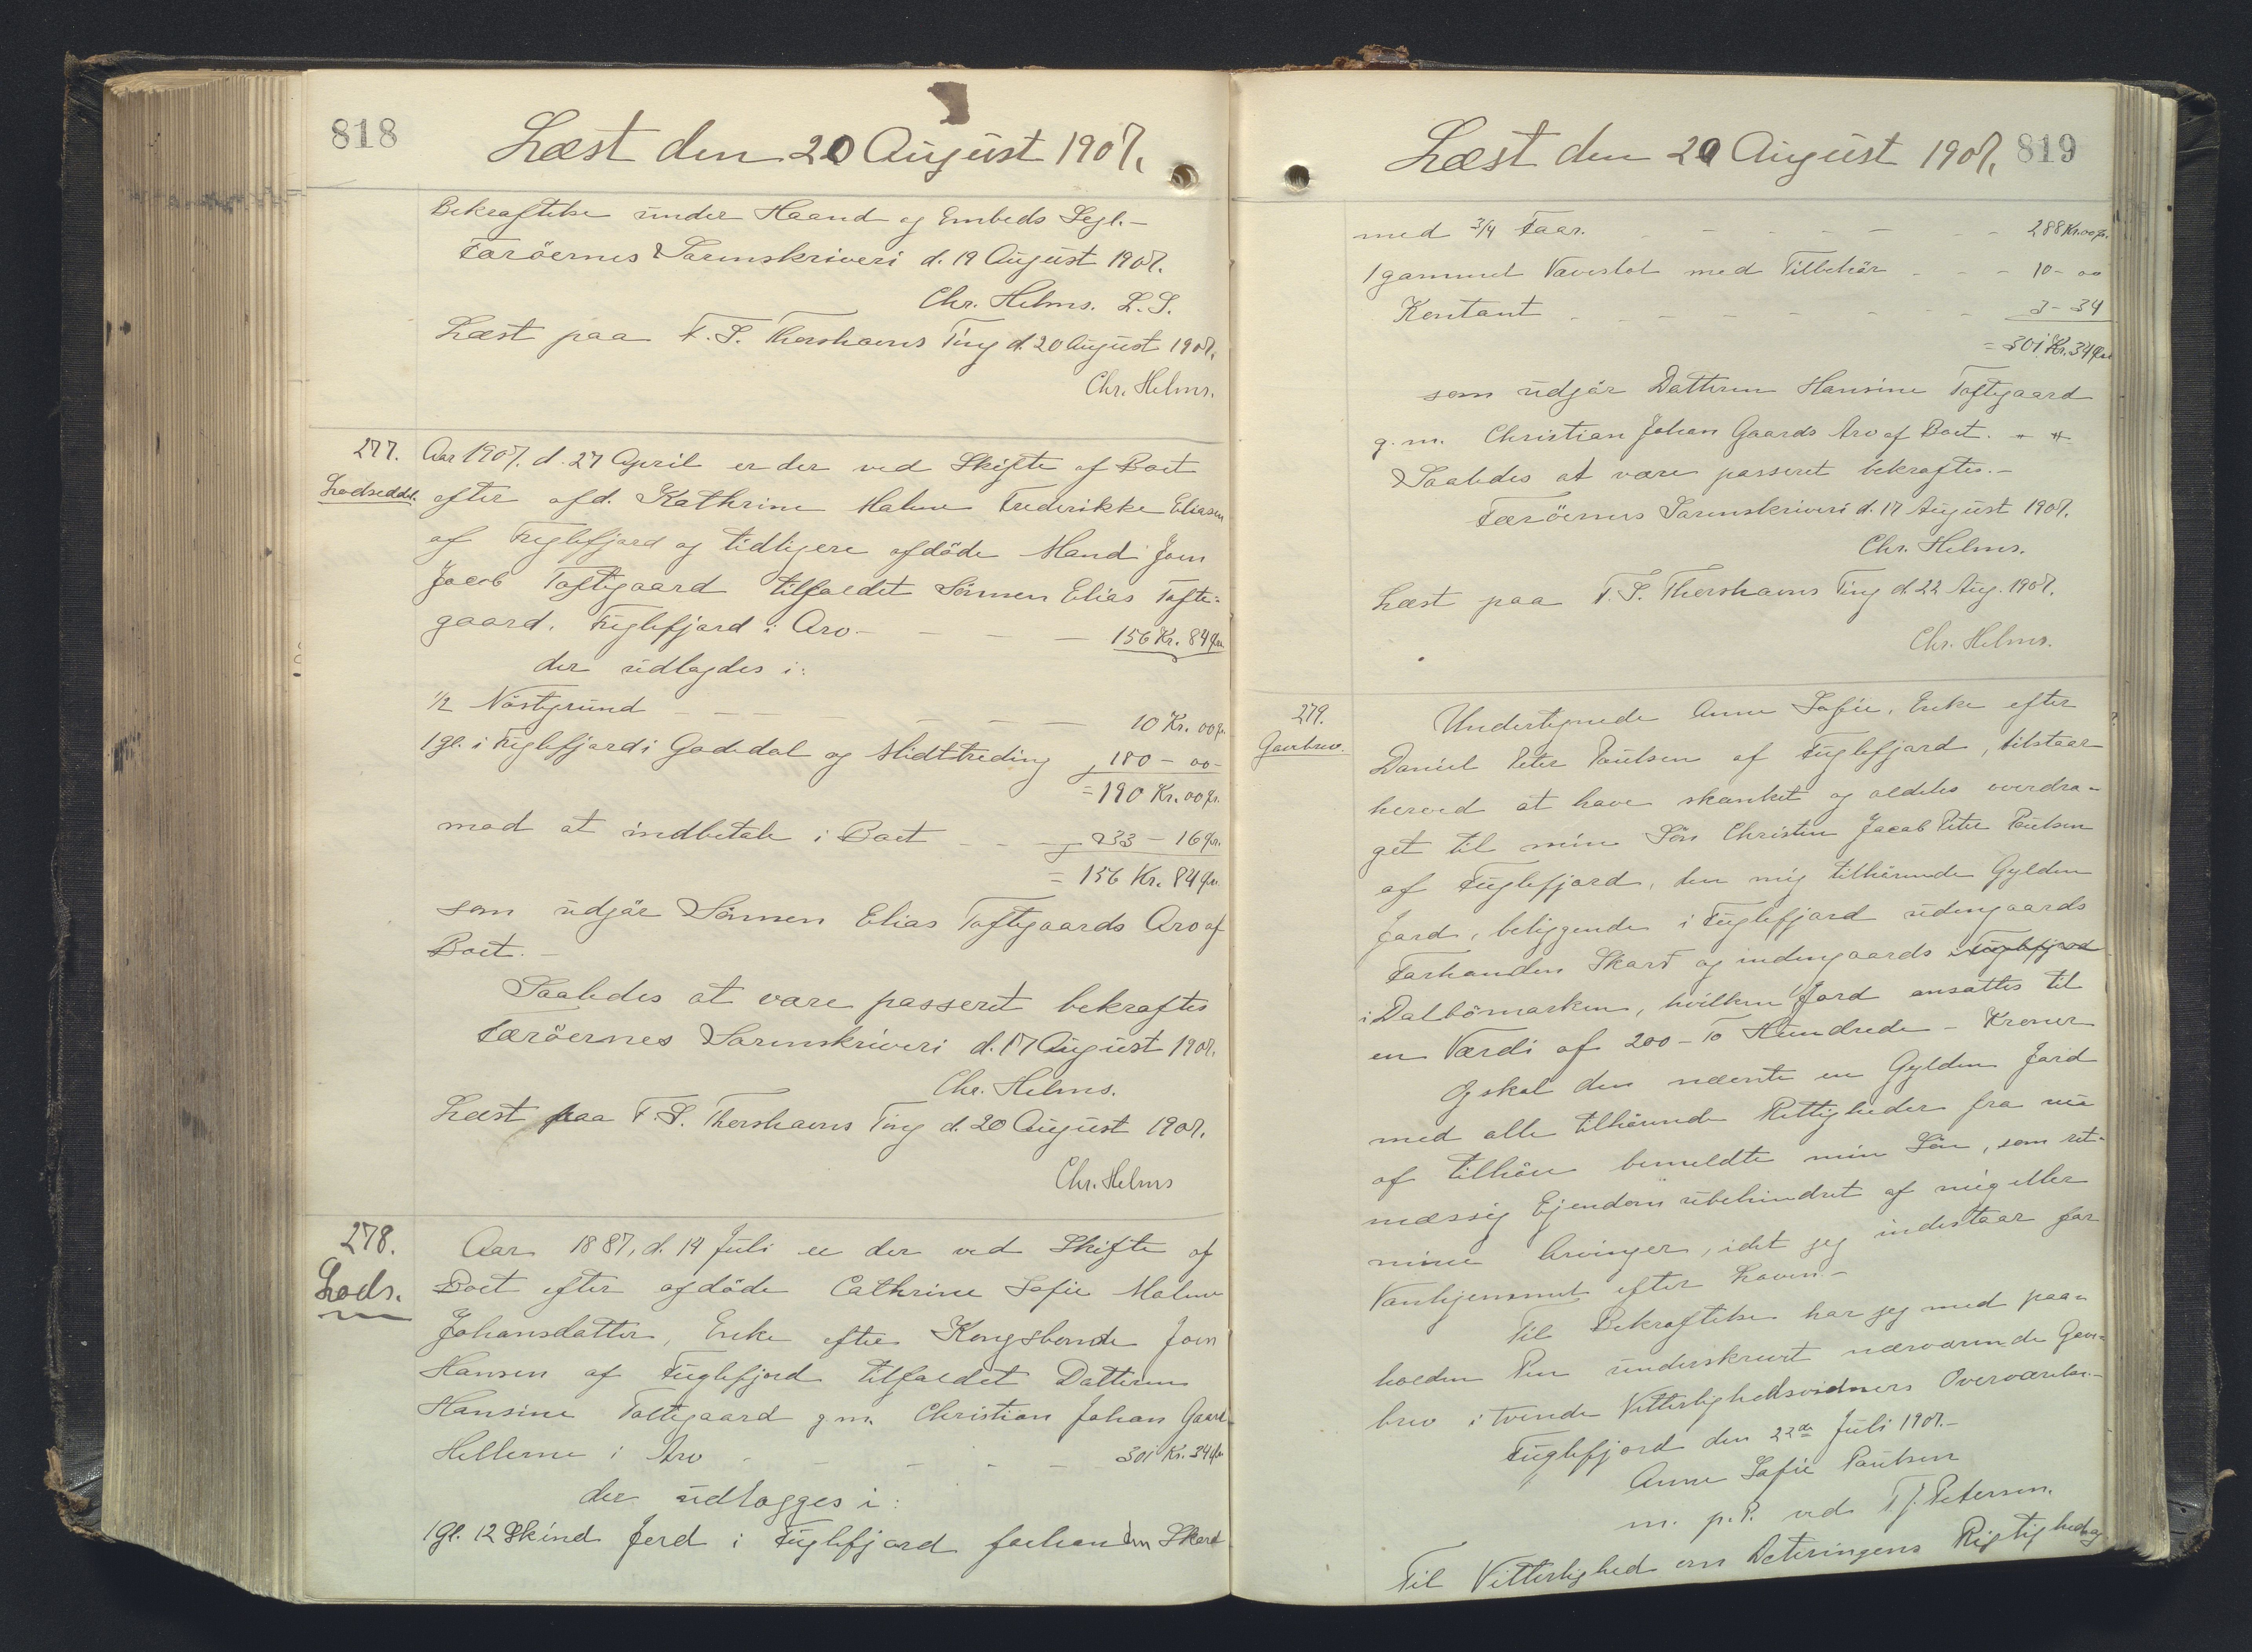 818
Læst den 20 August 1907.
Bekræftelse under Haand og Embeds Segl.-
Færöernes Sorenskriveri d. 19 August 1907.
Chr. Helms. L.S.
Læst paa F. S. Thorshavns Ting d. 20 August 1907.
Chr. Helms.
277.
Lodseddel.
Aar 1907. d. 27 April er der ved Skifte af Boet
efter afd. Kathrine Malene Frederikke Eliasen
af Fuglefjord og tidligere afdöde Mand Joen
Jacob Toftegaard tilfaldet Sönnen Elias Tofte=
gaard, Fuglefjord i Arv - - - - 156 Kr. 84 Ør.
der udlagdes i:
1/2 Nöstgrund - - - - - - 10 Kr. 00 Ør.
1 gl. i Fuglefjord i Gadedal og Midttreding 180 - 00 -
= 190 Kr. 00 Ør.
mod at indbetale i Boet - - - 33 - 16 Ør.
= 156 Kr. 84 Ør.
som udgör Sönnen Elias Toftegaards Arv af
Boet. -
Saaledes at være passeret bekræftes
Færöernes Sorenskriveri d. 17 August 1907.
Chr. Helms.
Læst paa F. S. Thorshavns Ting d. 20 August 1907.
Chr. Helms
278.
Lods.
Aar 1887, d. 14 Juli er der ved Skifte af
Boet efter afdöde Cathrine Sofie Malene
Johansdatter, Enke efter Kongsbonde Joen
Hansen af Fuglefjord tilfaldet Datteren
Hansine Toftegaard g. m. Christian Johan Gaard
Hellerne i Arv - - - - - 301 Kr. 34 Ør
der udlægges i:
1 Gl. 12 Skind Jord i Fuglefjord forhanden Skard
Læst den 20 August 1907. 819
med 3/4 Faar. - - - - - - - 288 Kr. 00 Ør.
1 gammel Vævestol med Tilbehör - - - 10 - 00
Kontant - - - - - - - - 3 - 34
= 301 Kr. 34 Ør
som udgör Datteren Hansine Toftegaard
g. m. Christian Johan Gaards Arv af Boet. -
Saaledes at være passeret bekræftes. -
Færöernes Sorenskriveri d. 17 August 1907.
Chr. Helms.
Læst paa F. S. Thorshavns Ting d. 22 Aug. 1907.
Chr. Helms.
279.
Gavebrev.
Undertegnede Anne Sofie, Enke efter
Daniel Peter Poulsen af Fuglefjord, tilstaar
herved at have skænket og aldeles overdra-
get til min Sön Christin Jacob Peter Poulsen
af Fuglefjord, den mig tilhörende Gylden
Jord, beliggende i Fuglefjord udengaards
Forhanden Skard og indengaards i Fuglefjord
i Dalbömarken, hvilken Jord ansættes til
en Værdi af 200 - To Hundrede - Kroner
Og skal den nævnte en Gylden Jord
med alle tilhörende Rettigheder fra nu
af tilhöre bemeldte min Sön, som ret-
mæssig Ejendom ubehindret af mig eller
mine Arvinger, idet jeg indestaar for
Vanhjemmel efter Loven. -
Til Bekræftelse har jeg med paa-
holden Pen underskrevet nærværende Gave-
brev i tvende Vitterlighedsvidners Overværelse. -
Fuglefjord den 22de Juli 1907. -
Anne Sofie Poulsen
m. p. P. ved J. Petersen.
Til Vitterlighed om Dateringens Rigtighed og